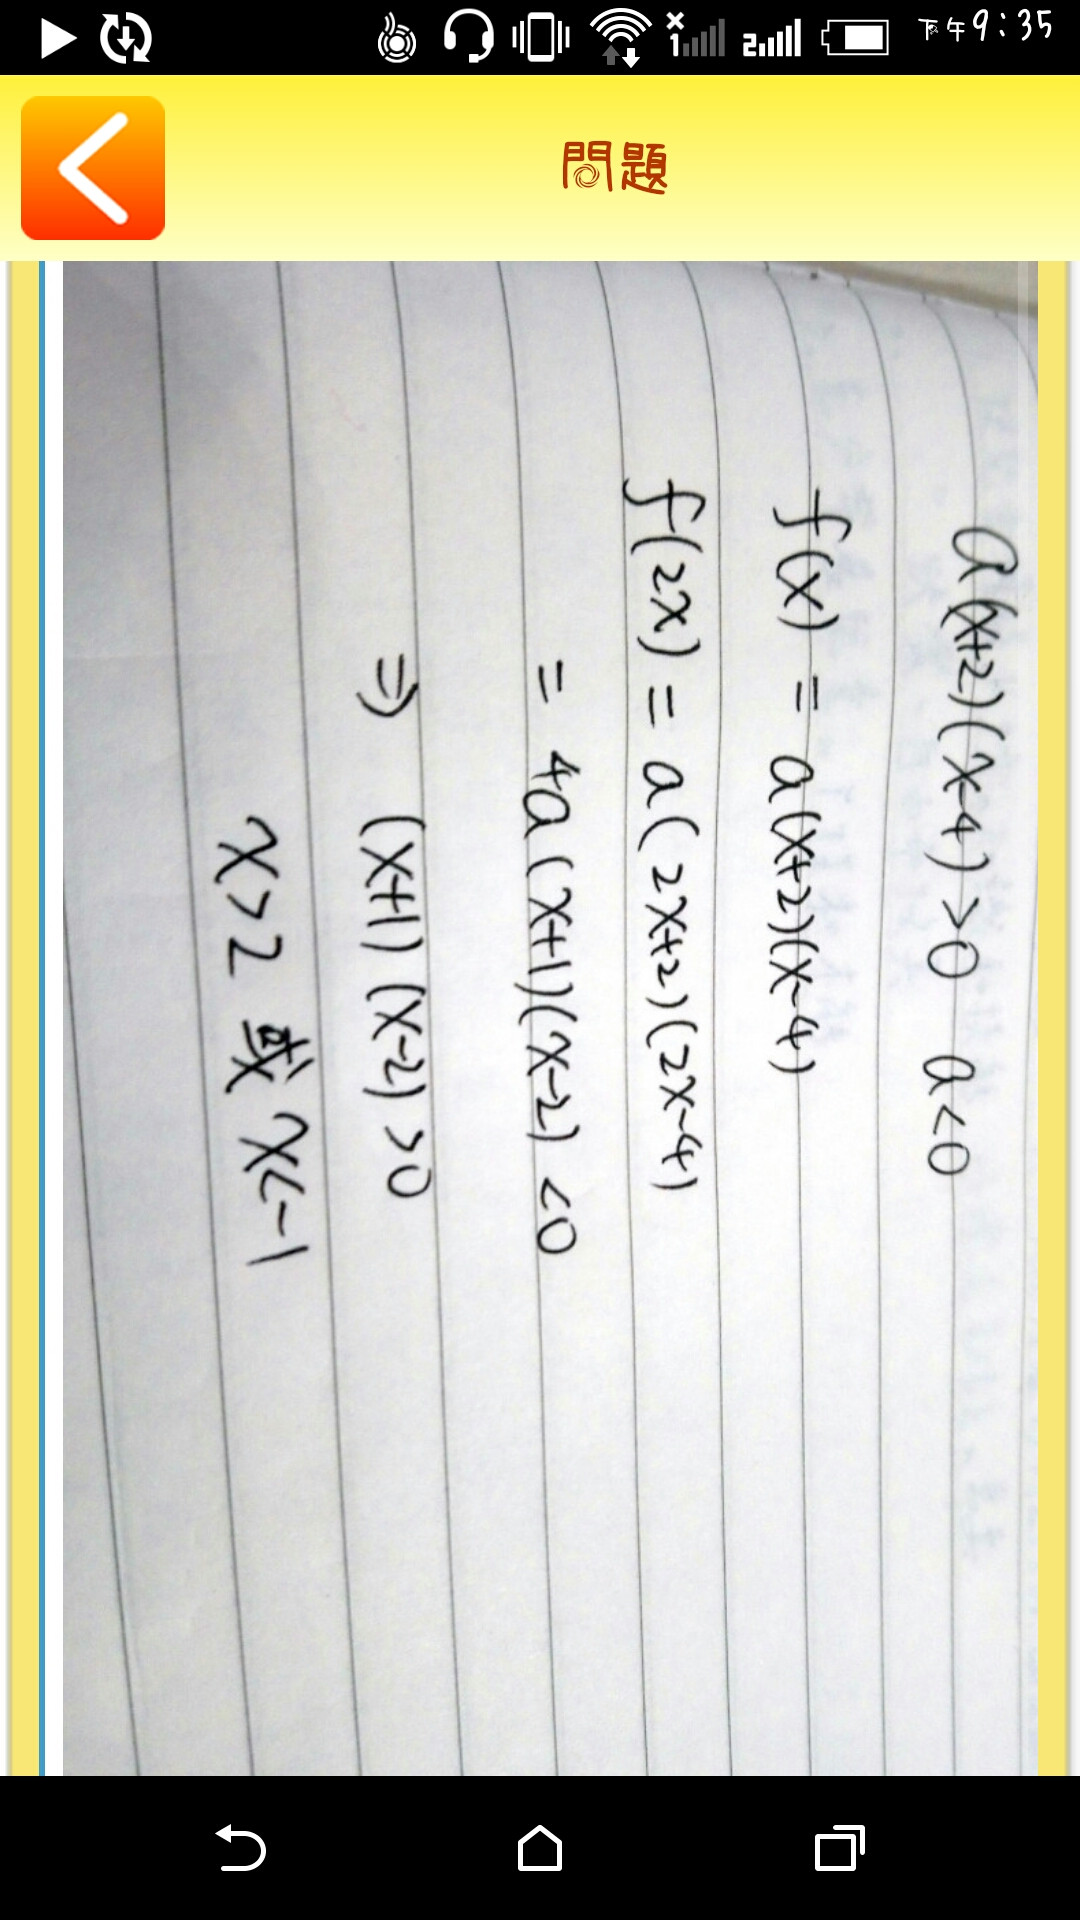 下午9:35
問題
a(x+2)(x-4)>0 a<0
f(x) = a(x+2)(x-4)
f(2x) = a(2x+2)(2x-4)
= 4a(x+1)(x-2)<0
⇒ (x+1)(x-2)>0
x>2 或 x<-1